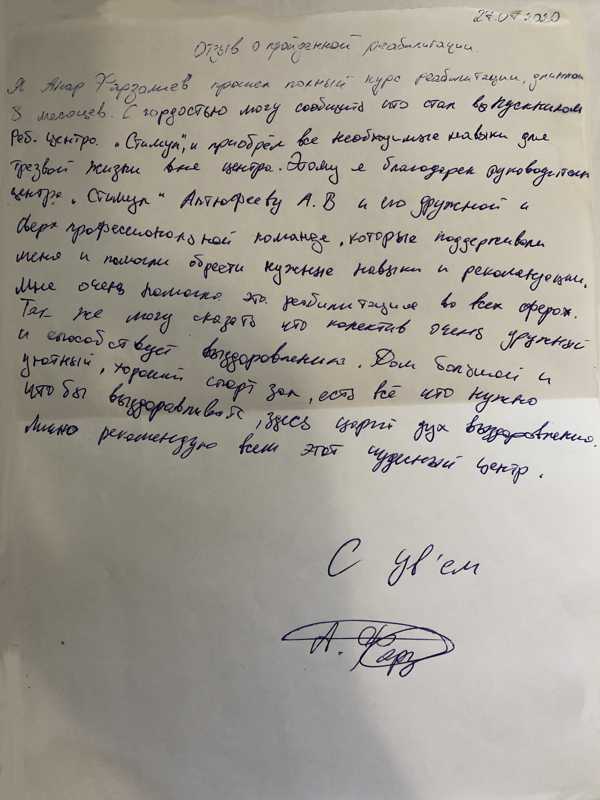 27.07.2020
Отзыв о пройденной реабилитации.
Я Анар Фарзалиев прошел полный курс реабилитации, длинною
8 месяцев. С гордостью могу сообщить что стал выпускником
Реб. Центра. „Стимул", и приобрёл все необходимые навыки для
трезвой жизни вне центра. Этому я благодарен руководителю
центра „Стимул" Алтюфееву А.В и его дружной и
сверх профессиональной команде, которые поддерживали
меня и помогли обрести нужные навыки и рекомендации.
Мне очень помогла эта реабилитация во всех сферах.
Так же могу сказать что колектив очень дружный
и способствует выздоровлению. Дом большой и
уютный, хороший спорт зал, есть всё что нужно
что бы выздоравливать, здесь царит дух выздоровления.
Лично рекомендую всем этот чудесный центр.
С ув'ем
А. Фарз